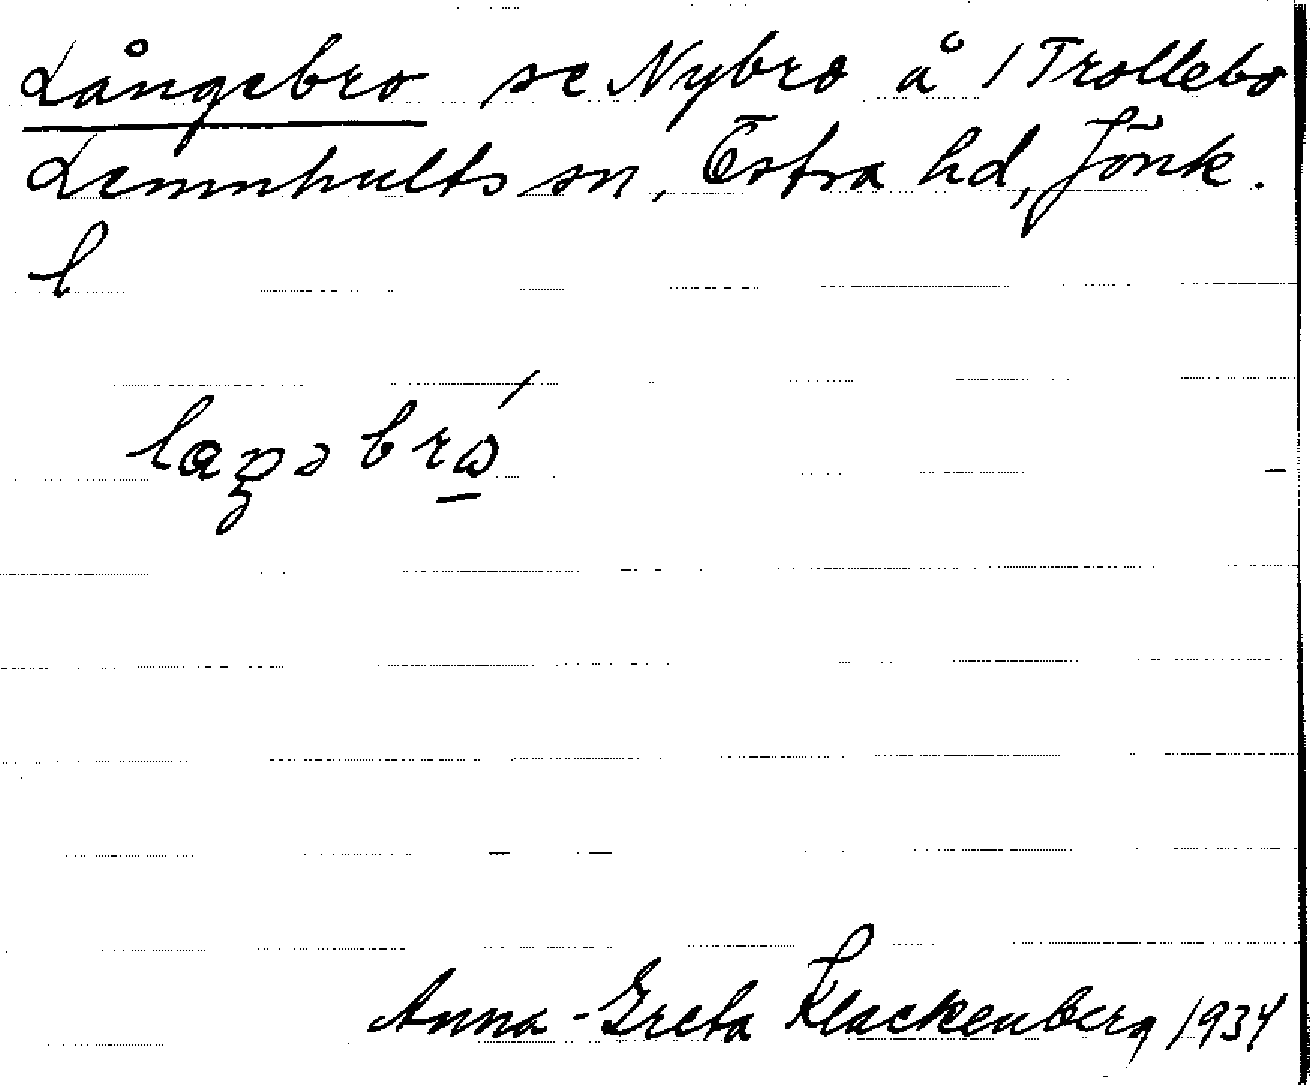 Långebro se Nybro å / Trollebo
Lemnhults sn, Östra hd, Jönk.
l
Anna-Greta Klackenberg 1934